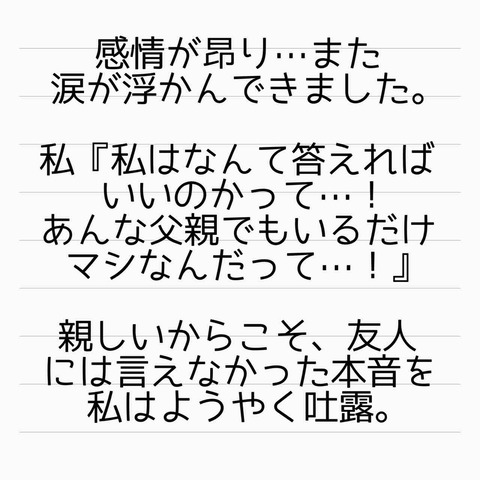 感情が昂り…また
涙が浮かんできました。
私『私はなんて答えれば
いいのかって…！
あんな父親でもいるだけ
マシなんだって…！』
親しいからこそ、友人
には言えなかった本音を
私はようやく吐露。